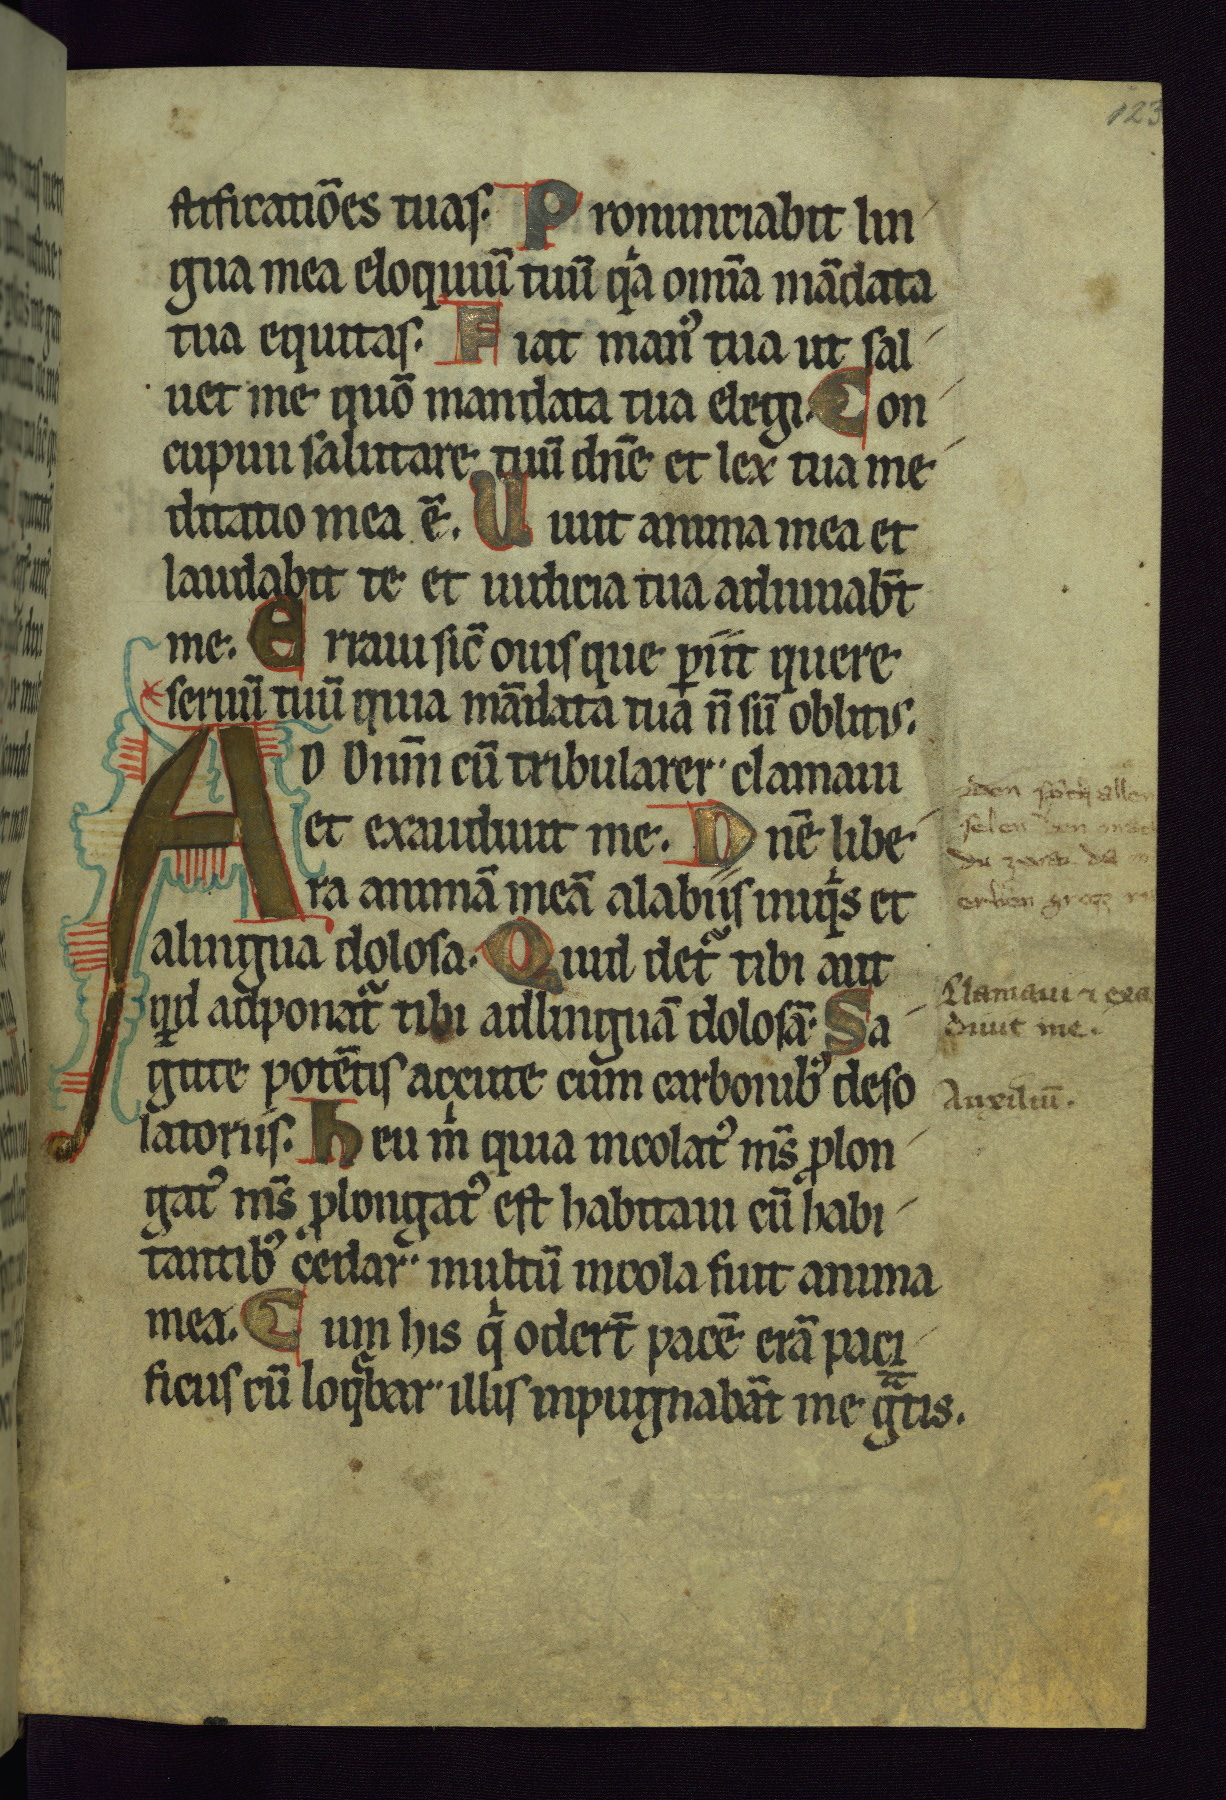 123
stificatiōes tuas. Pronunciabit lin
gua mea eloquiū tuū qia omīa mādata
tua equitas. Fiat man᾿ tua ut sal
uet me quō mandata tua elegi. Con
cupiui salutare tuū dn̄e et lex tua me
ditatio mea ē. Uiuit anima mea et
laudabit te et iudicia tua adiuuab̄t
me. Erraui sic̄ ouis que p̱iit quere
seruū tuū quia mādata tua n̄ sū oblitus.
AD Dn̄m cū tribularer clamaui
et exaudiuit me. Dn̄e libe
ra animā meā a labiis iniqis et
a lingua dolosa. Quid det᷑ tibi aut
qd adponat᷑ tibi ad linguā dolosā. Sa
gitte potētis accute cum carbonib᾿ deso
latoriis. Heu m̄ quia incolat᾿ m̄s ꝓlon
gat᾿ m̄s ꝓlongat᾿ est habitaui cū habi
tantib᾿ cedar multū incola fuit anima
mea. Cum his qi oder̄t pacē erā paci
ficus cū loqbar illis inpugnabāt me gtis.
Clamaui ⁊ exa
diuit me.
Auxiliū.